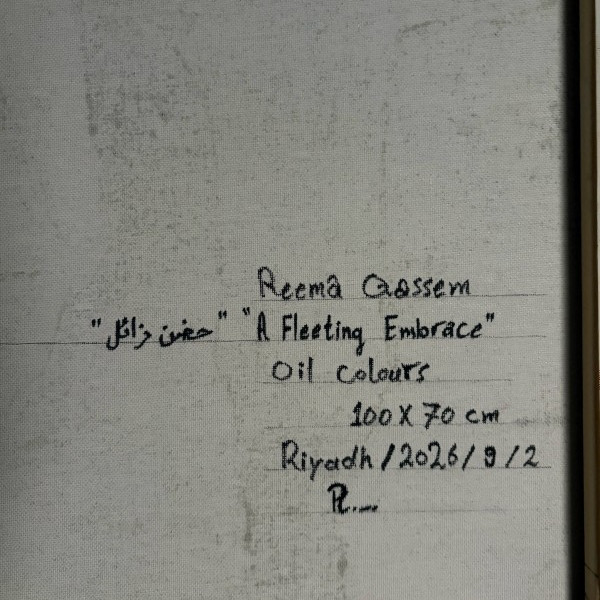 Reema Qassem
"حضن زائل" "A Fleeting Embrace"
Oil Colours
100 X 70 cm
Riyadh / 2026 / 9 / 2